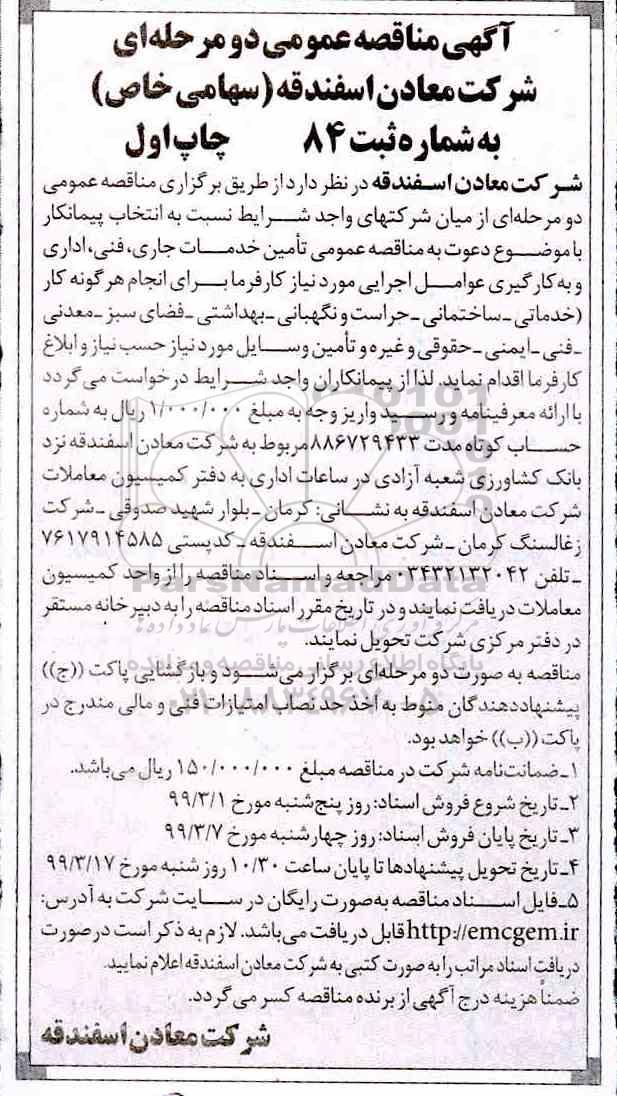 آگهی مناقصه عمومی دو مرحله‌ای
شرکت معادن اسفندقه (سهامی خاص)
به شماره ثبت ۸۴ چاپ اول
شرکت معادن اسفندقه در نظر دارد از طریق برگزاری مناقصه عمومی
دو مرحله‌ای از میان شرکتهای واجد شرایط نسبت به انتخاب پیمانکار
با موضوع دعوت به مناقصه عمومی تأمین خدمات جاری، فنی، اداری
و به کارگیری عوامل اجرایی مورد نیاز کارفرما برای انجام هرگونه کار
(خدماتی ـ ساختمانی ـ حراست و نگهبانی ـ بهداشتی ـ فضای سبز ـ معدنی
ـ فنی ـ ایمنی ـ حقوقی و غیره و تأمین وسایل مورد نیاز حسب نیاز و ابلاغ
کارفرما اقدام نماید. لذا از پیمانکاران واجد شرایط درخواست می‌گردد
با ارائه معرفینامه و رسید واریز وجه به مبلغ ۱/۰۰۰/۰۰۰ ریال به شماره
حساب کوتاه مدت ۸۸۶۷۲۹۴۳۳ مربوط به شرکت معادن اسفندقه نزد
بانک کشاورزی شعبه آزادی در ساعات اداری به دفتر کمیسیون معاملات
شرکت معادن اسفندقه به نشانی: کرمان ـ بلوار شهید صدوقی ـ شرکت
زغالسنگ کرمان ـ شرکت معادن اسفندقه ـ کدپستی ۷۶۱۷۹۱۴۵۸۵
ـ تلفن ۰۳۴۳۲۱۳۲۰۴۲ مراجعه و اسناد مناقصه را از واحد کمیسیون
معاملات دریافت نمایند و در تاریخ مقرر اسناد مناقصه را به دبیرخانه مستقر
در دفتر مرکزی شرکت تحویل نمایند.
مناقصه به صورت دو مرحله‌ای برگزار می‌شود و بازگشایی پاکت ((ج))
پیشنهاددهندگان منوط به اخذ حد نصاب امتیازات فنی و مالی مندرج در
پاکت ((ب)) خواهد بود.
۱ـ ضمانت‌نامه شرکت در مناقصه مبلغ ۱۵۰/۰۰۰/۰۰۰ ریال می‌باشد.
۲ـ تاریخ شروع فروش اسناد: روز پنج‌شنبه مورخ ۹۹/۳/۱
۳ـ تاریخ پایان فروش اسناد: روز چهارشنبه مورخ ۹۹/۳/۷
۴ـ تاریخ تحویل پیشنهادها تا پایان ساعت ۱۰/۳۰ روز شنبه مورخ ۹۹/۳/۱۷
۵ـ فایل اسناد مناقصه به‌صورت رایگان در سایت شرکت به آدرس:
http://emcgem.ir قابل دریافت می‌باشد. لازم به ذکر است در صورت
دریافت اسناد مراتب را به صورت کتبی به شرکت معادن اسفندقه اعلام نمایید.
ضمناً هزینه درج آگهی از برنده مناقصه کسر می‌گردد.
شرکت معادن اسفندقه
ParsNamadData
پایگاه اطلاع رسانی مناقصه و مزایده
۰۲۱-۸۸۳۴۹۶۷۰-۵